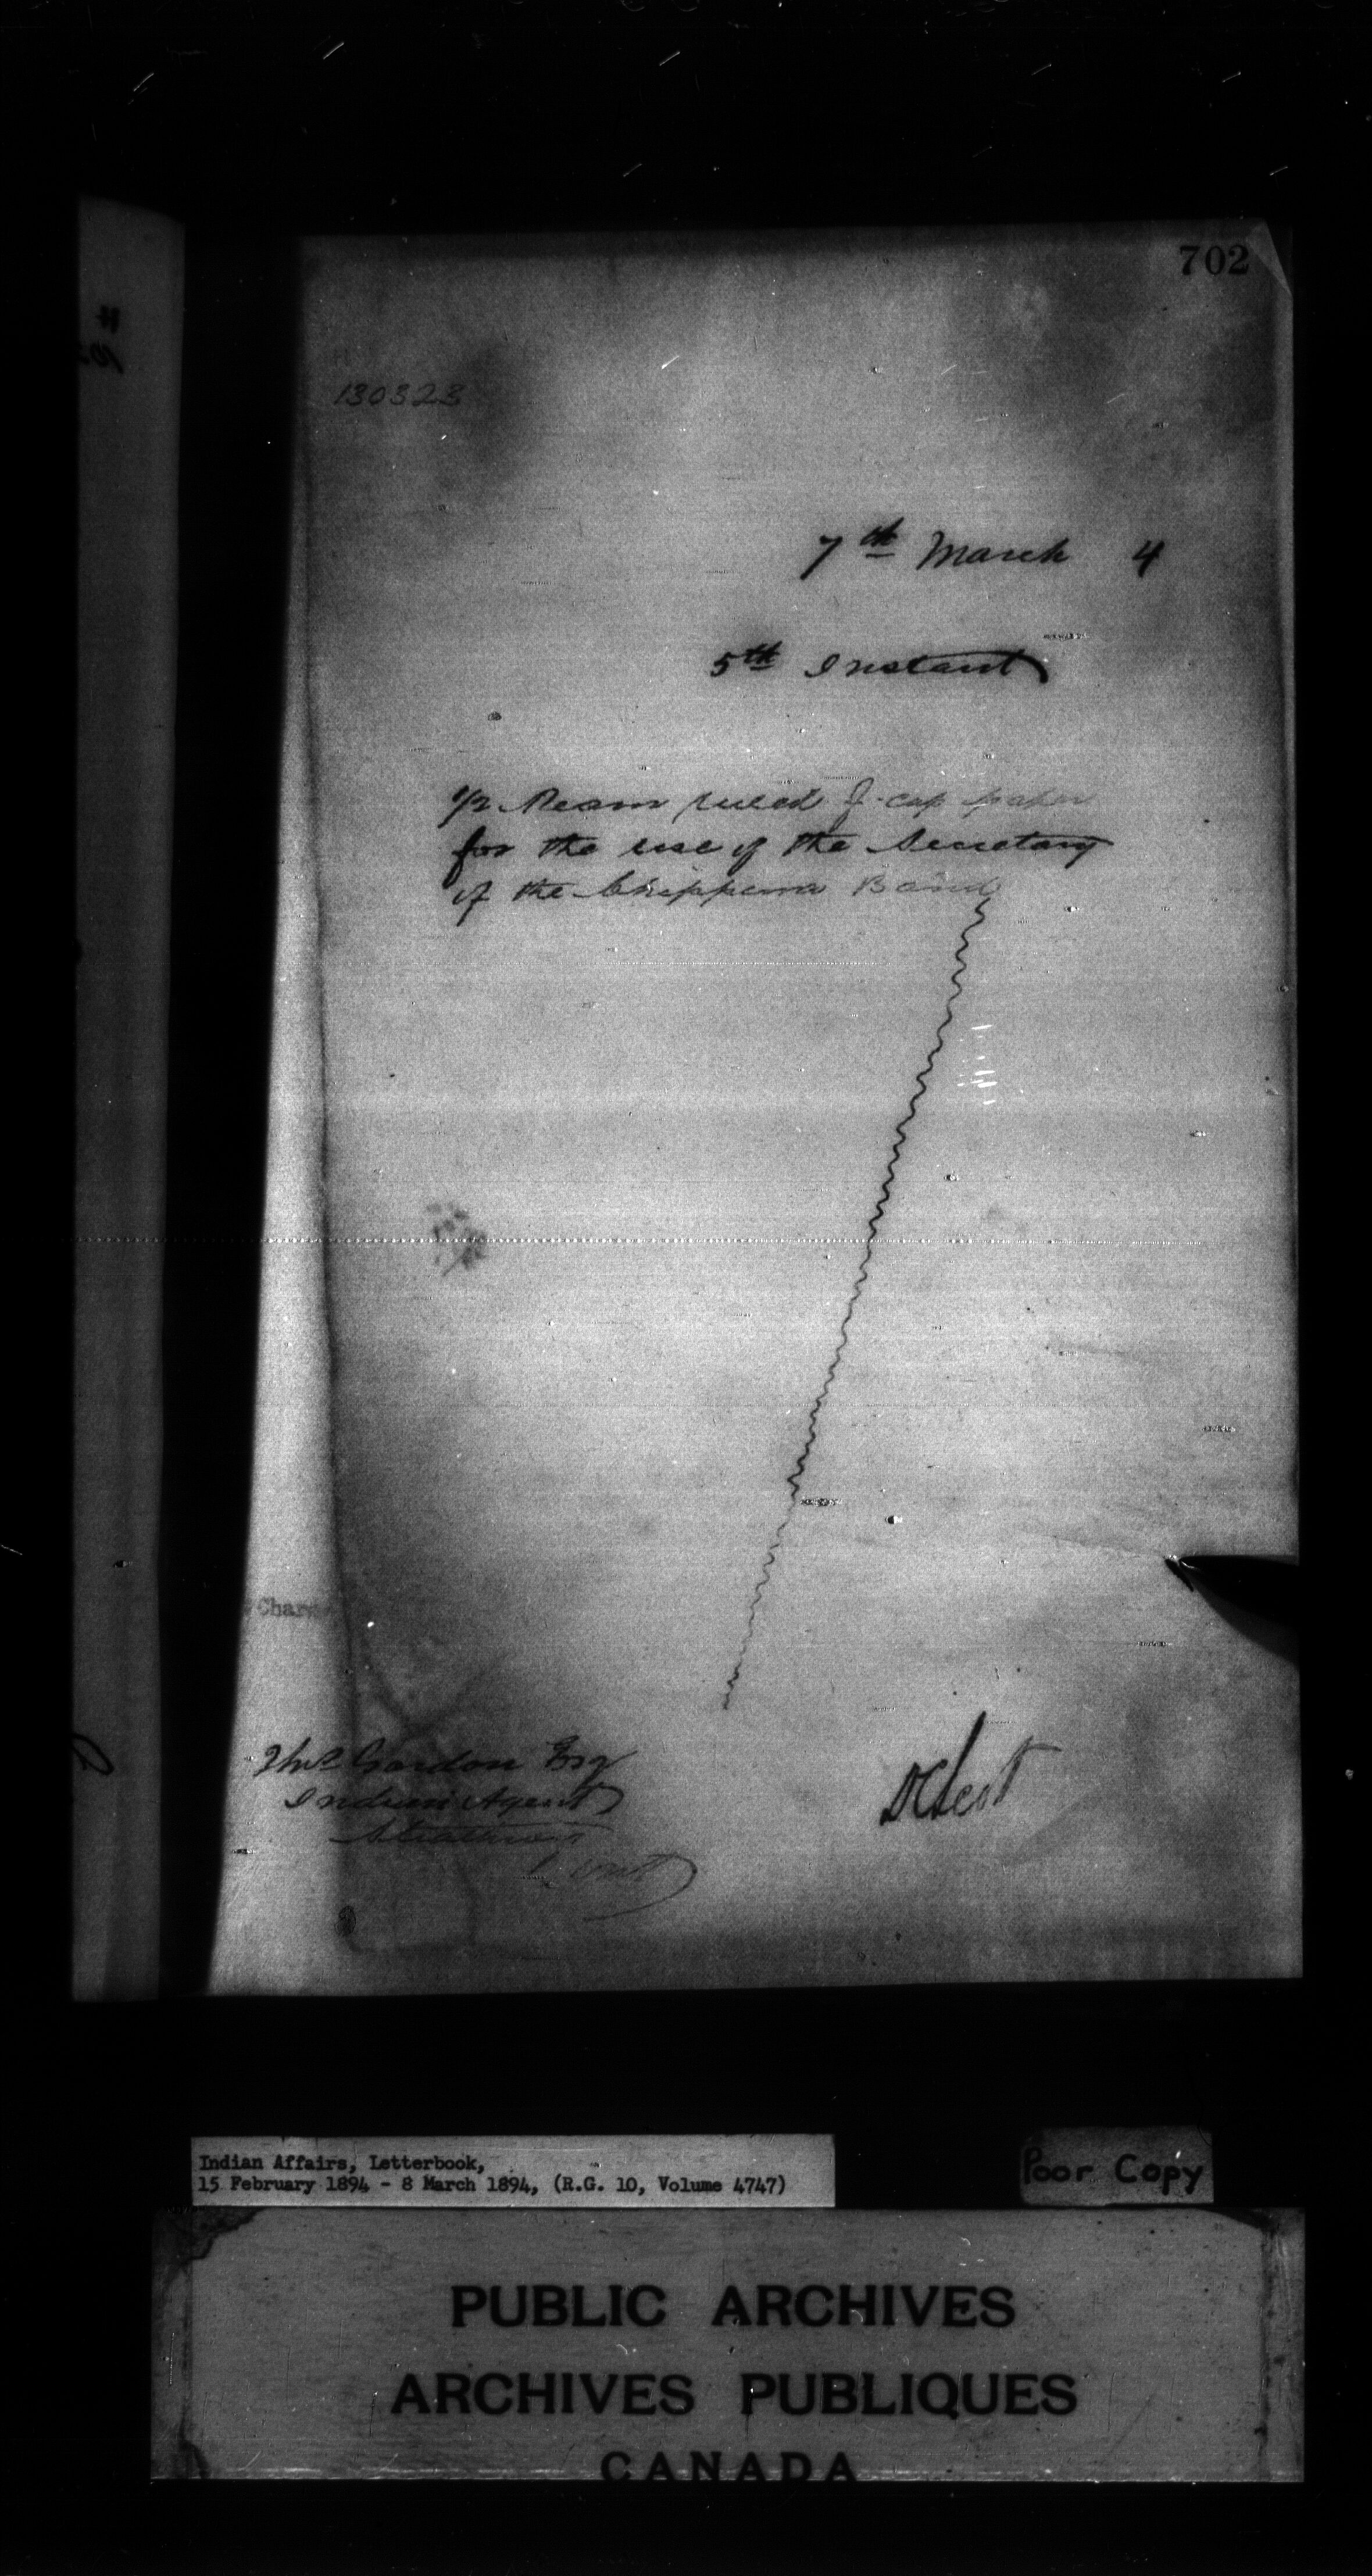 702
130323
7th March 4
5th Instant
1/2 Ream ruled f-cap paper
for the use of the Secretary
of the Chippewa Band
Char
Thos Gordon Esq
Indian Agent
Strathroy
Ont
D C Scott
Indian Affairs, Letterbook,
15 February 1894 - 8 March 1894, (R.G. 10, Volume 4747)
Poor Copy
PUBLIC ARCHIVES
ARCHIVES PUBLIQUES
CANADA